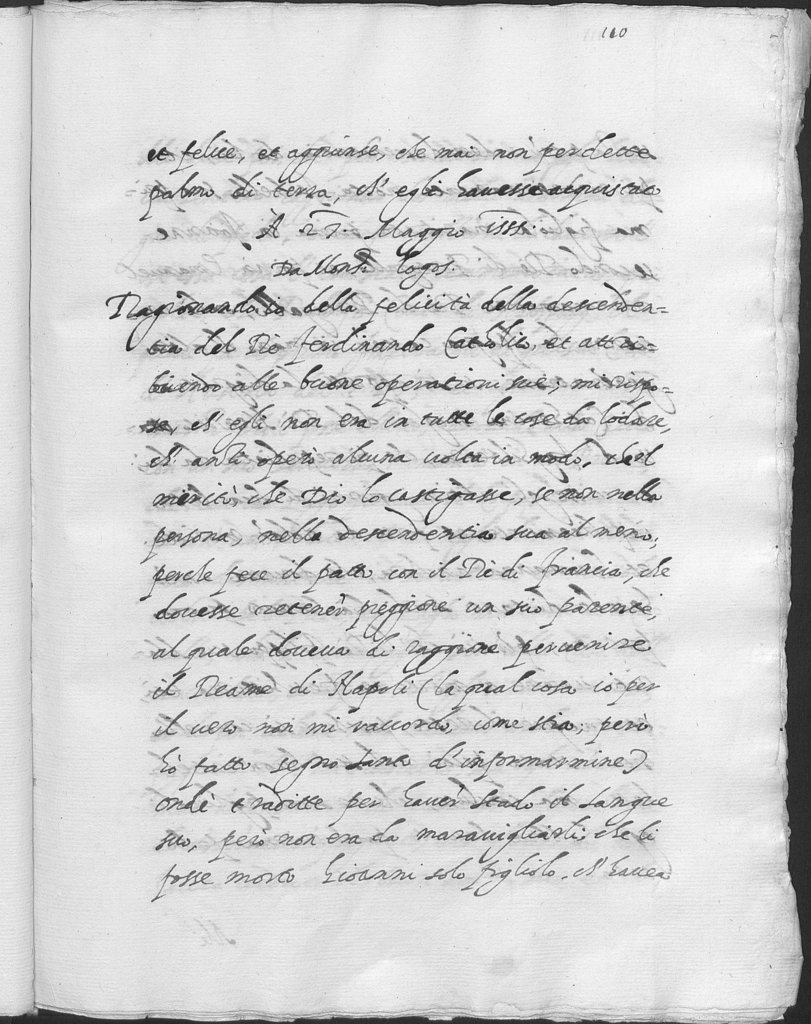 110
et felice, et aggiunse, che mai non perdette
palmo di terra, ch' egli havesse acquistato
À 27. Maggio 1555.
Da Monsr
Ragionando io della felicità della descenden=
tia del Re Ferdinando Catolico, et attri=
buendo alle buone operationi sue; mi rispo=
se, ch' egli non era in tutte le cose da lodare,
ch' anzi operò alcuna volta in modo, che'l
meritò, che Dio lo castigasse, se non nella
persona, nella descendentia sua al meno;
perche fece il patto con il Re di Francia, che
dovesse retener preggione un suo parente,
al quale doveva di raggione pervenire
il Reame di Napoli (la qual cosa io per
il vero non mi raccordo, come stia; però
hò fatto segno d'informarmine)
onde traditte per haver stado il sangue
suo, però non era da maravigliarsi, che li
fosse morto Giovanni solo figliolo, ch' havea